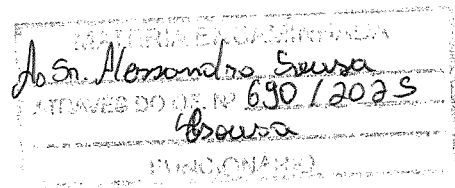 MATÉRIA ENCAMINHADA
Ao Sr. Alessandro Sousa
ATRAVÉS DO OF. Nº 690 / 2025
Esousa
FUNCIONÁRIO